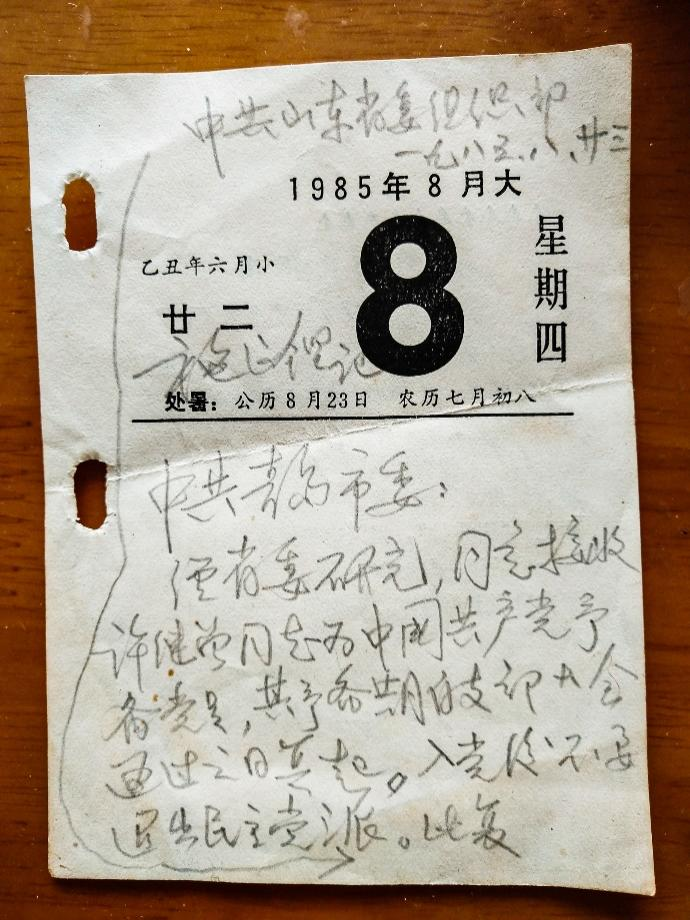 中共山东省委组织部
一九八五、八、廿三
1985年8月大
乙丑年六月小
廿二
8
星期四
处暑：公历8月23日 农历七月初八
中共青岛市委：
经省委研究，同意接收
许继曾同志为中国共产党予
备党员，其予备期自支部大会
通过之日算起。入党后不要
退出民主党派。此复